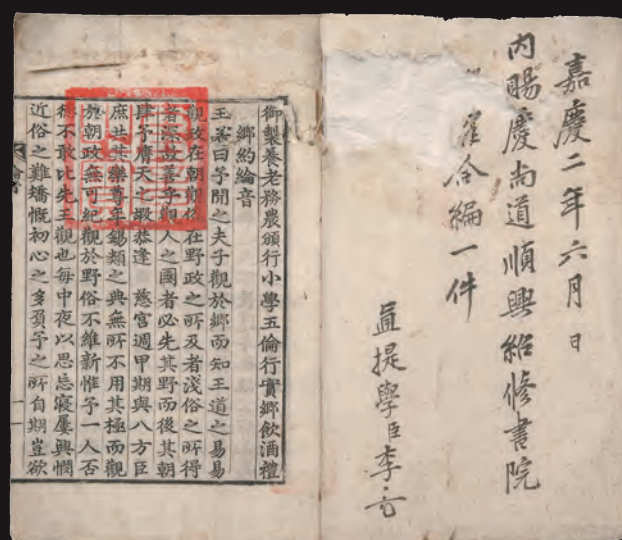 嘉慶二年六月 日
內賜慶尚道順興紹修書院
合編一件
直提學臣李
御製養老務農頒行小學五倫行實鄉飲酒禮
鄉約綸音
王若曰予聞之夫子觀於鄉而知王道之易易
觀政在朝觀俗在野政之所及者淺俗之所得
者深故善乎觀人之國者必先其野而後其朝
肆予膺天之嘏恭逢 慈宮週甲期與八方臣
庶共其樂尊年錫類之典無所不用其極而觀
於朝政無可紀觀於野俗不維新惟予一人否
德不敢比先王觀也每中夜以思忘寢屢興憫
近俗之難矯慨初心之多負予之所自期豈欲